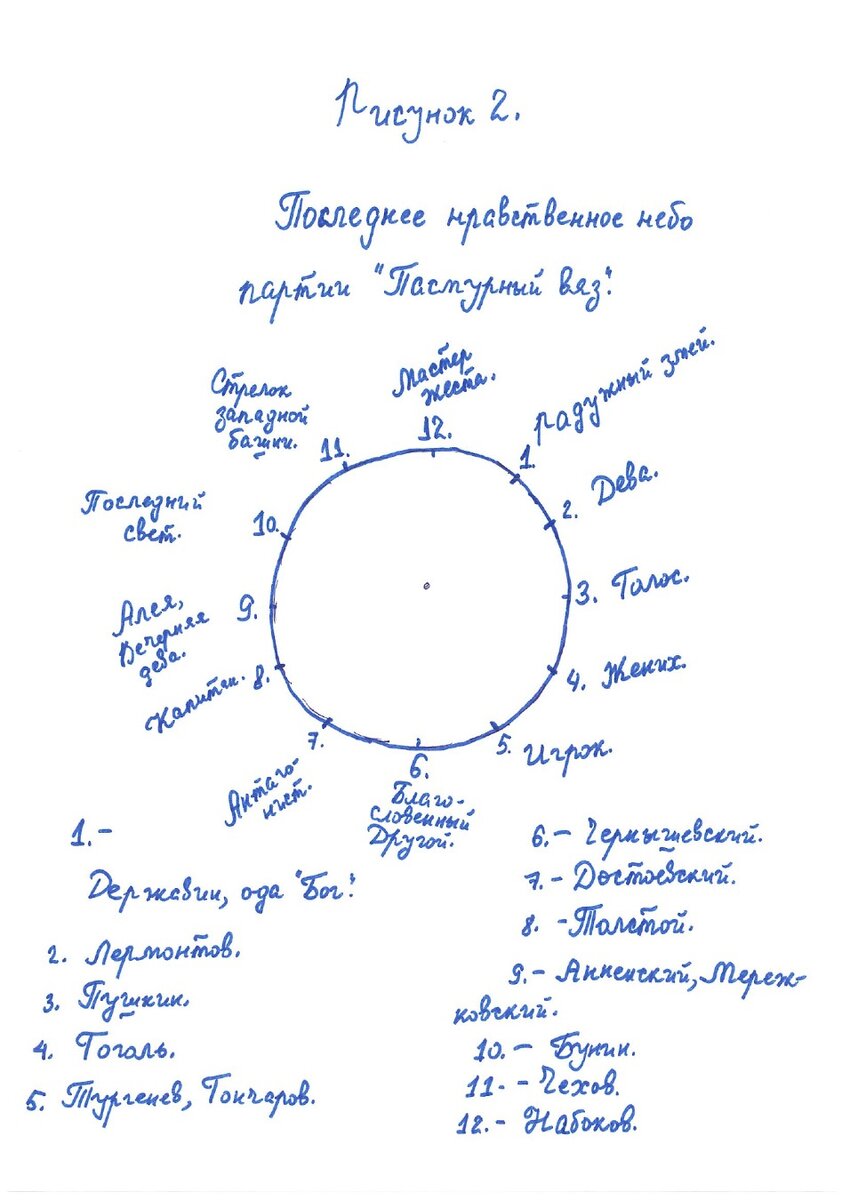 Рисунок 2.
Последнее нравственное небо
партии "Пасмурный вяз".
Мастер
жеста.
12.
Радужный змей.
1.
2. Дева.
3. Голос.
4. Жених.
5. Игрок.
6.
Благо-
словенный
Другой.
7.
Антаго-
нист.
8.
Капитан.
9.
Алея,
Вечерняя
дева.
10.
Последний
свет.
11.
Стрелок
западной
башни.
1. –
Державин, ода "Бог".
2. Лермонтов.
3. Пушкин.
4. Гоголь.
5. Тургенев, Гончаров.
6. – Чернышевский.
7. – Достоевский.
8. – Толстой.
9. – Анненский, Мереж-
ковский.
10. – Бунин.
11. – Чехов.
12. – Набоков.